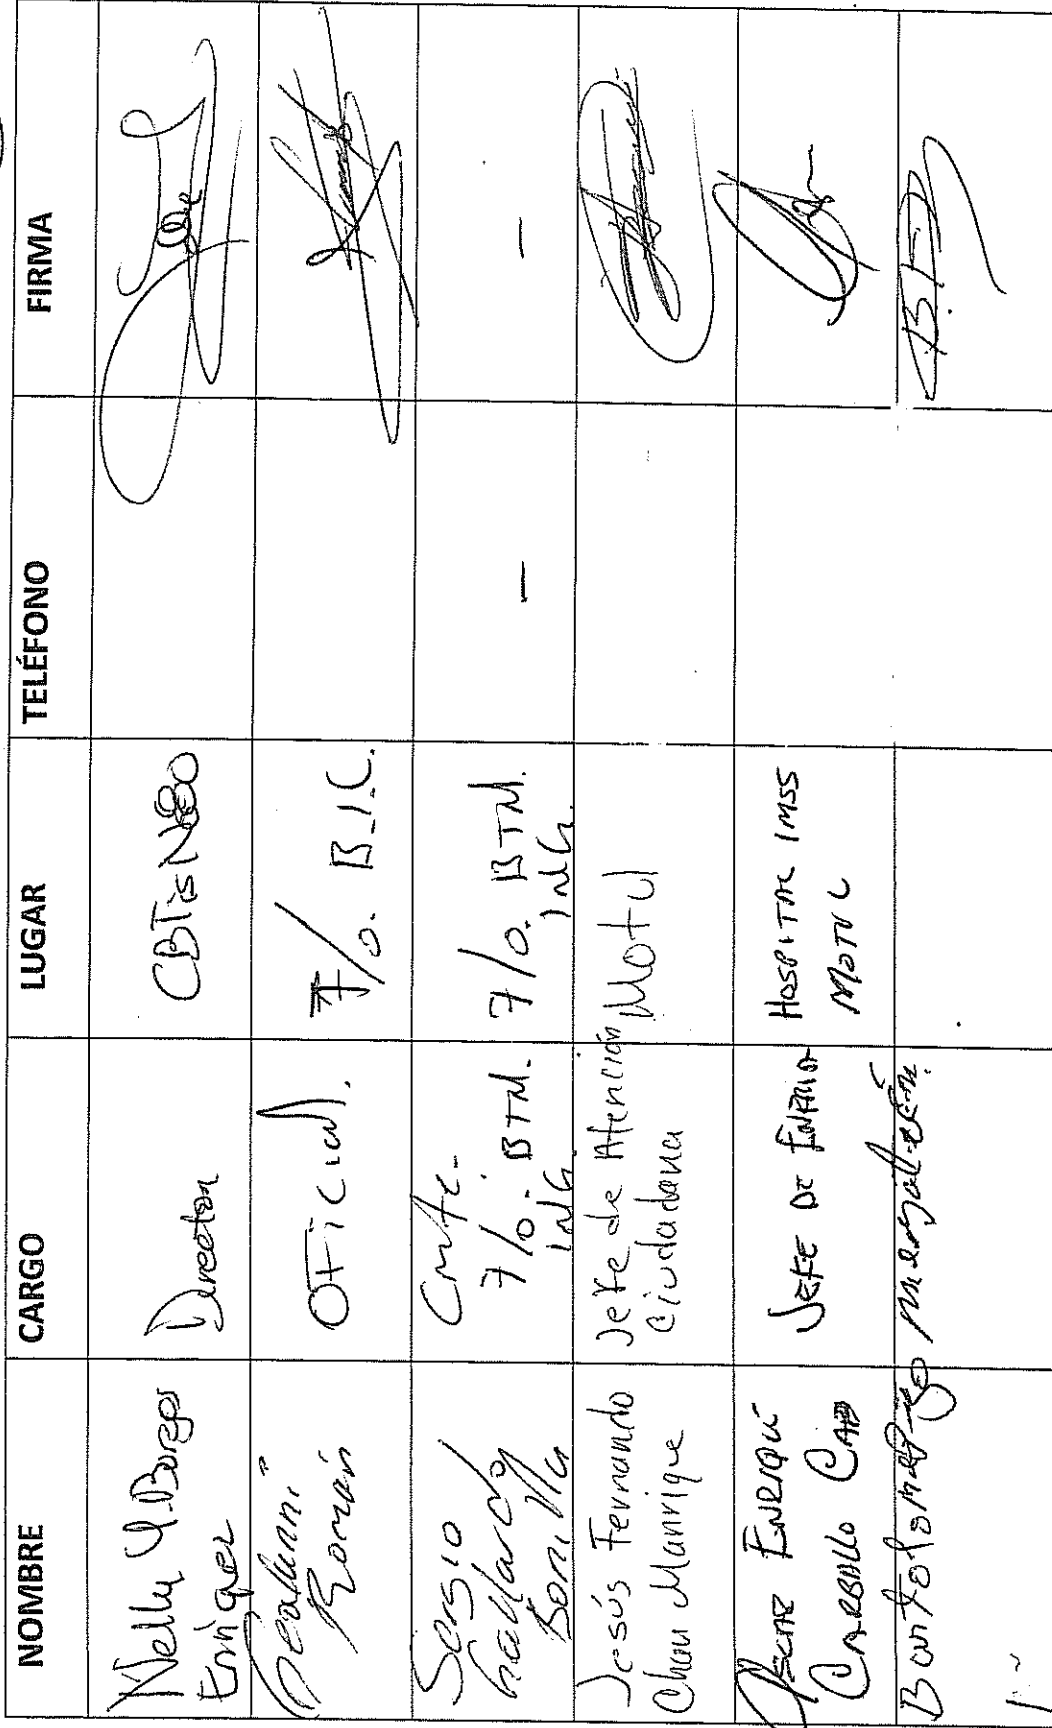 NOMBRE CARGO LUGAR TELÉFONO FIRMA
Nelly Y. Borges
Enriquez
Director
CBTis N° 80
Román
OFicial.
7/o. B.I.C.
Sergio
Gallardo
Bonilla
Cmte.
7/o. BTM.
ING.
7/o. BTM.
ING.
—
—
Jesús Fernando
Chan Manrique
Jefe de Atención
Ciudadana
Motul
ENRIQUE
CARBALLO
JEFE DE
HOSPITAL IMSS
MOTUL
B.P.